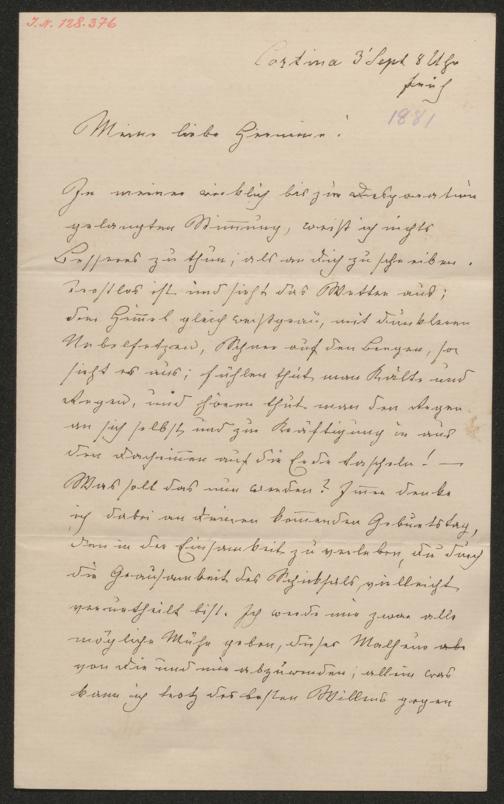 J.N. 128.376
Cortina 3' Sept 8 Uhr
früh
1881
Meine liebe Hermine!
In meiner wirklich bis zur Desperation
gelangten Stimmung, weiß ich nichts
Besseres zu thun, als an dich zu schreiben.
Trostlos ist und sieht das Wetter aus;
der Himmel gleich weißgrau, mit dunkleren
Nebelfetzen, Schnee auf den Bergen, so
sieht es aus; fühlen thut man Kälte und
Regen, und hören thut man den Regen
an sich selbst und zur Kräftigung in aus
den Dachrinnen auf die Erde tascheln! —
Was soll das nun werden? Immer denke
ich dabei an deinen kommenden Geburtstag,
den in der Einsamkeit zu verleben, du durch
die Grausamkeit des Schicksals vielleicht
verurtheilt bist. Ich werde mir zwar alle
mögliche Mühe geben, dieses Malheur
von dir und mir abzuwenden; allein was
kann ich trotz des besten Willens gegen